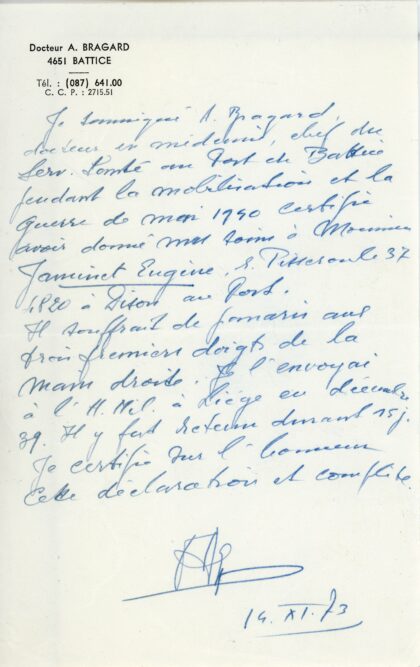 Docteur A. BRAGARD
4651 BATTICE
Tél. : (087) 641.00
C. C. P. : 2715.51
Je soussigné A. Bragard,
docteur en médecine, chef du
Serv. Santé au Fort de Battice
pendant la mobilisation et la
guerre de mai 1940 certifie
avoir donné mes soins à Monsieur
Jaminet Eugène, r. 37
4820 à Dison au Fort.
Il souffrait de panaris aux
trois premiers doigts de la
main droite. Je l'envoyai
à l'H. Mil. à Liège en décembre
39. Il y fut retenu durant 15 j.
Je certifie sur l'honneur
cette déclaration et complète.
14. XI. 73